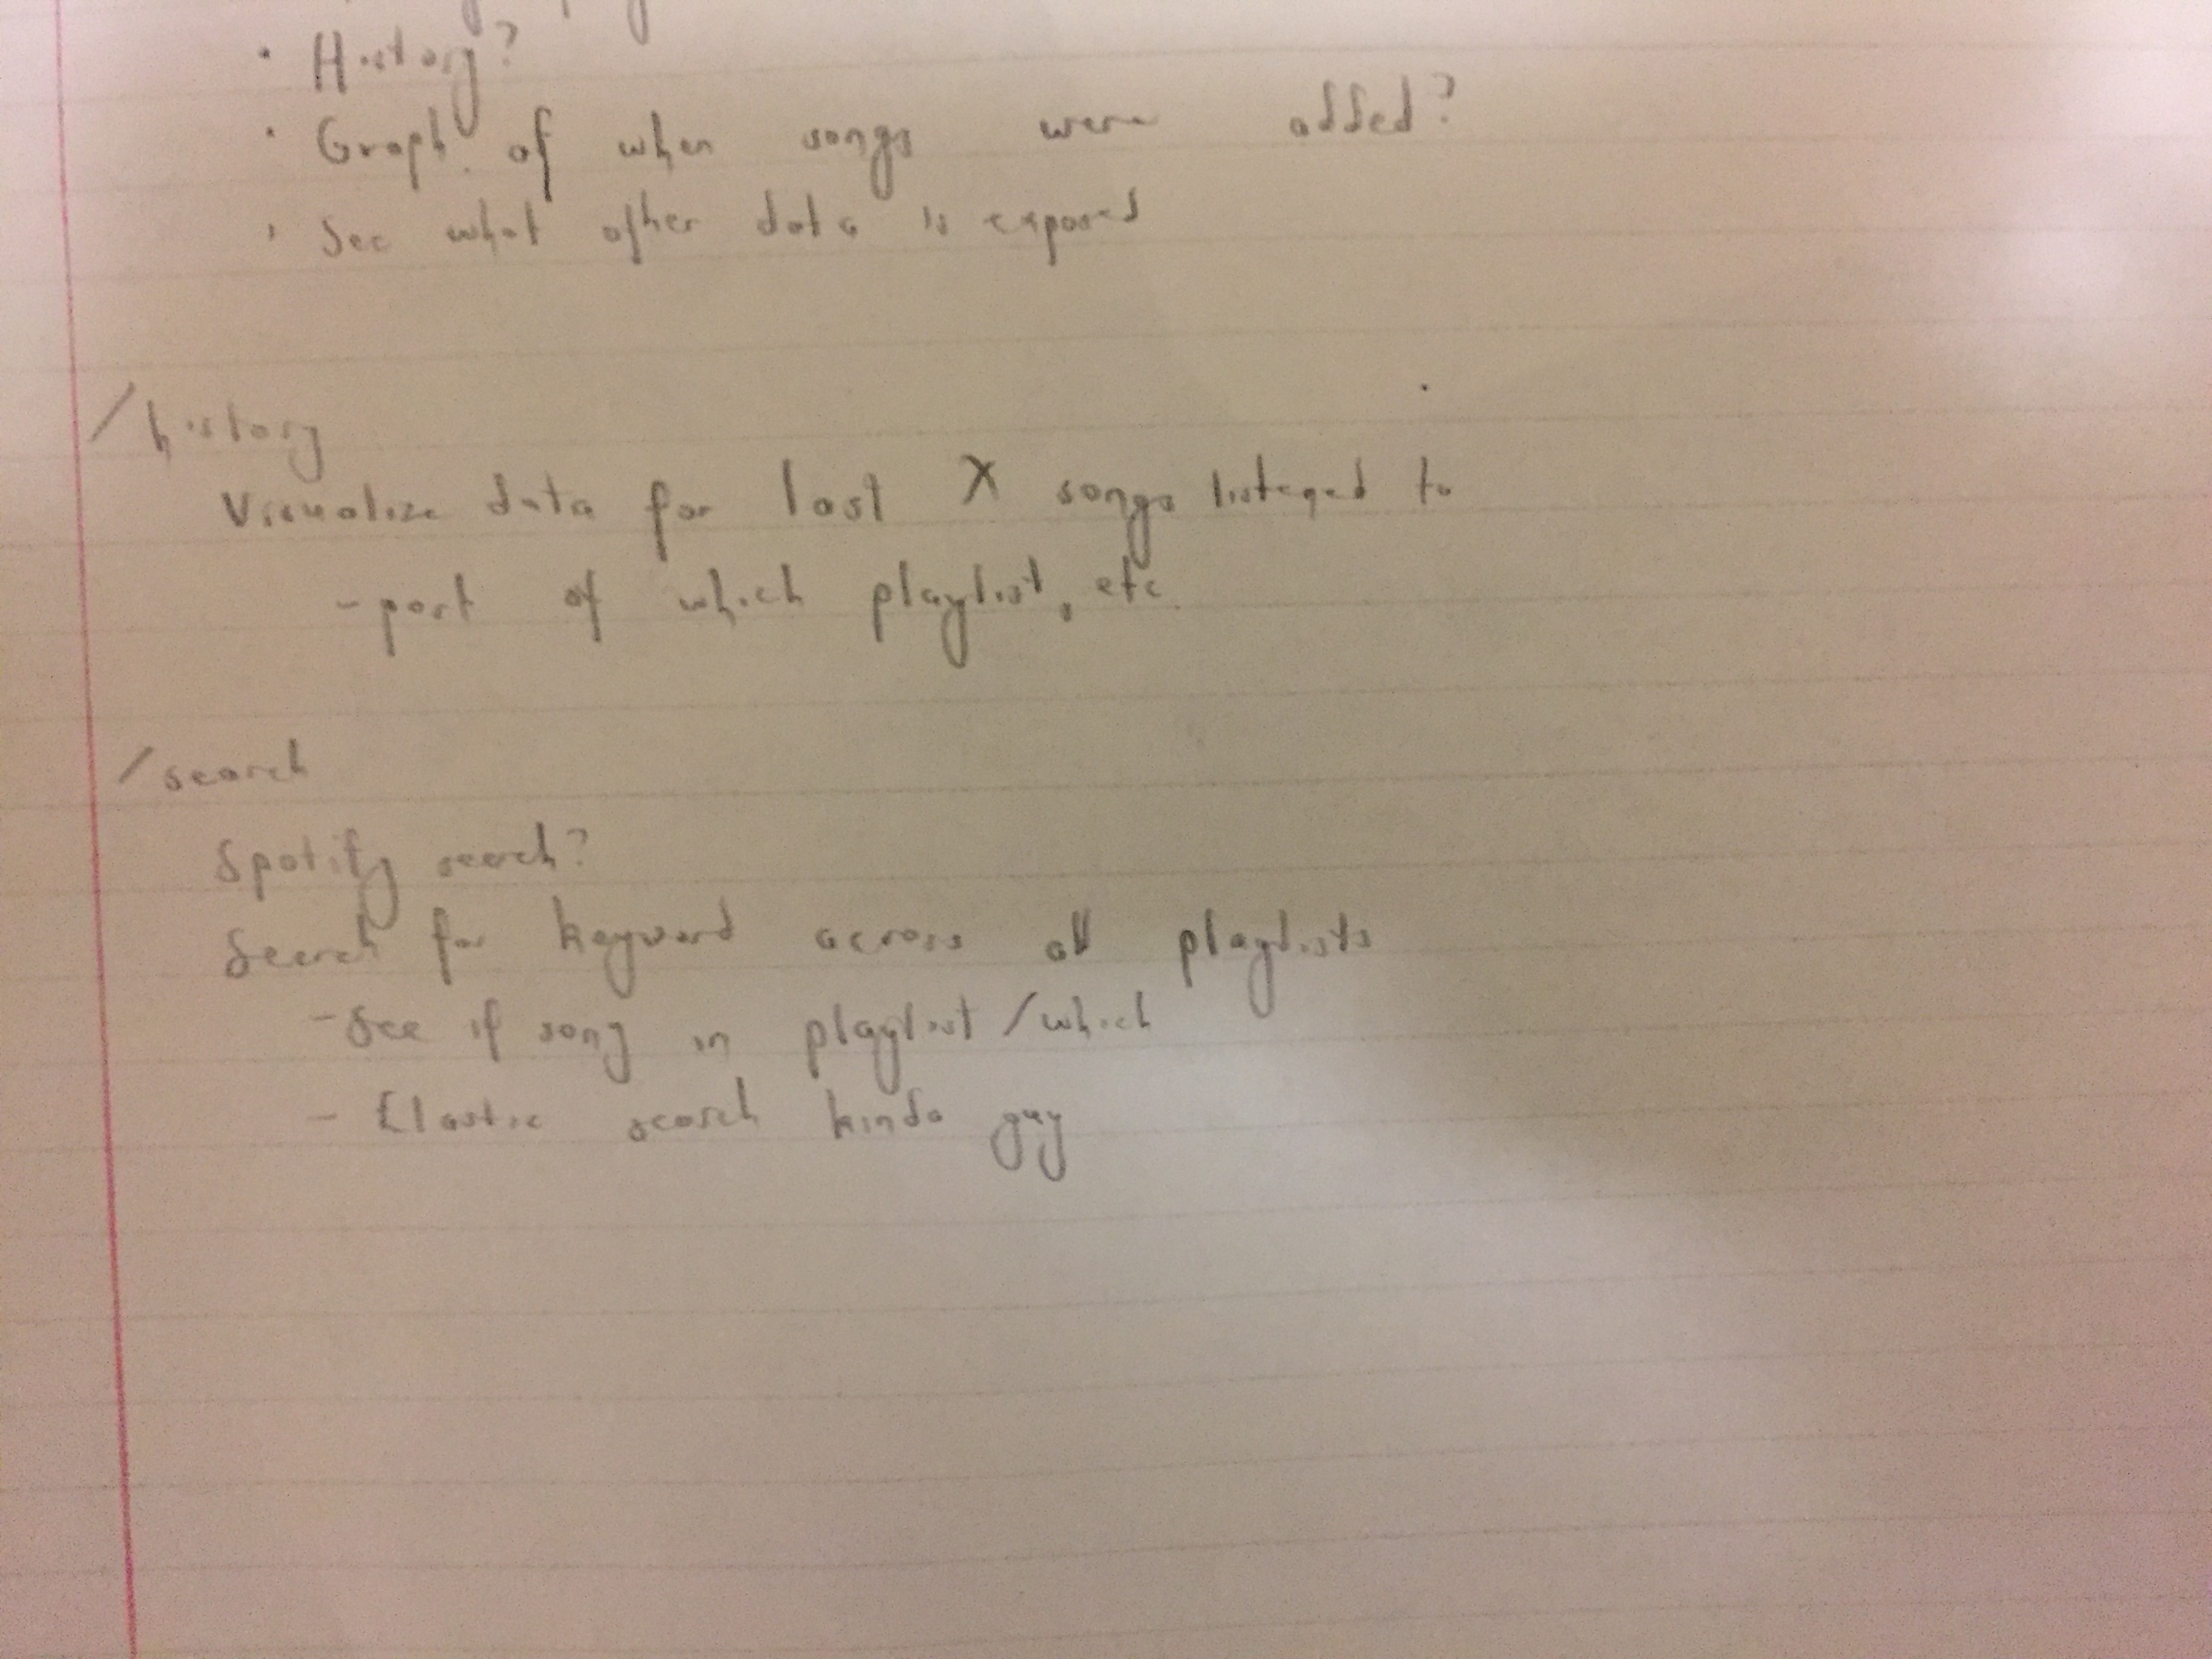 · History?
· Graph of when songs were added?
· See what other data is exposed
/history
Visualize data for last X songs listened to
- part of which playlist, etc.
/search
Spotify search?
Search for keyword across all playlists
- See if song in playlist /which
- Elastic search kinda guy